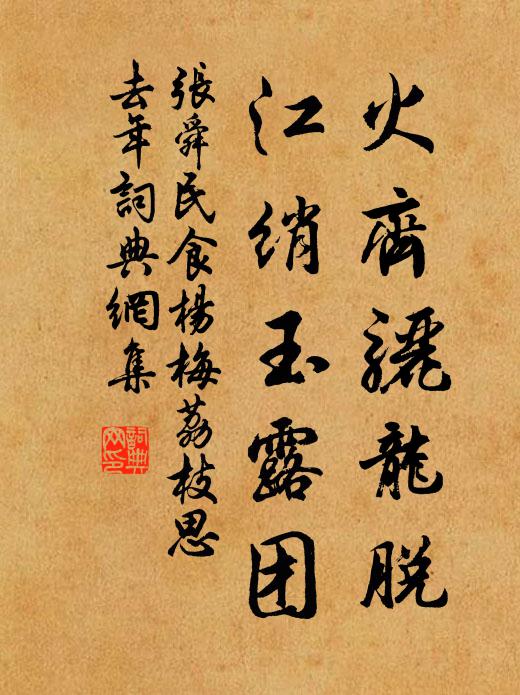 火齊驪龍脫
江綃玉露团
張舜民食楊梅荔枝思
去年詞典網集
詞典
网印